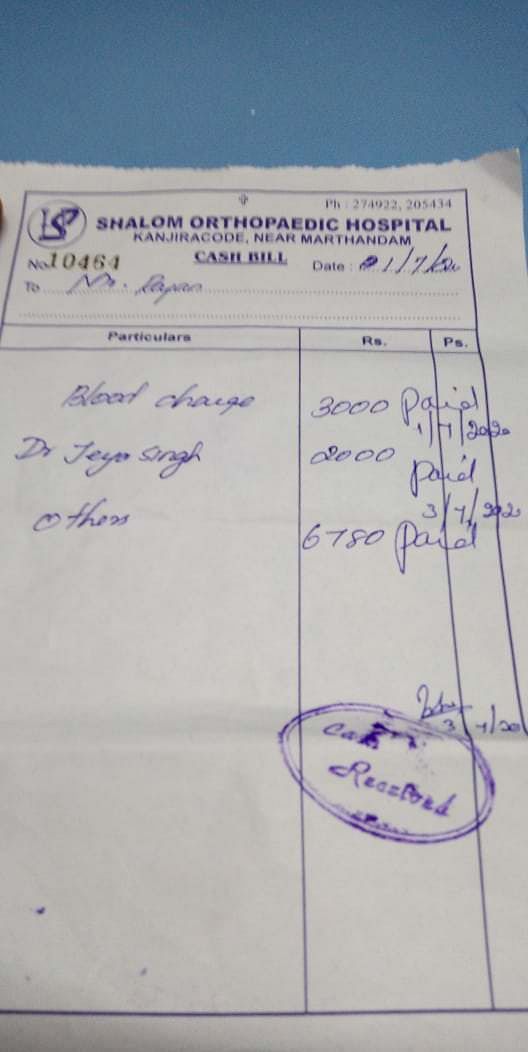 Ph : 274922, 205434
SHALOM ORTHOPAEDIC HOSPITAL
KANJIRACODE, NEAR MARTHANDAM
No. 10464 CASH BILL Date : 1/7/20
To Mr.
Particulars Rs. Ps.
Blood charge 3000 Paid
1/7/2020
Dr Jeya Singh 2000 Paid
3/7/2020
others 6780 Paid
3/7/20
Cash
Received